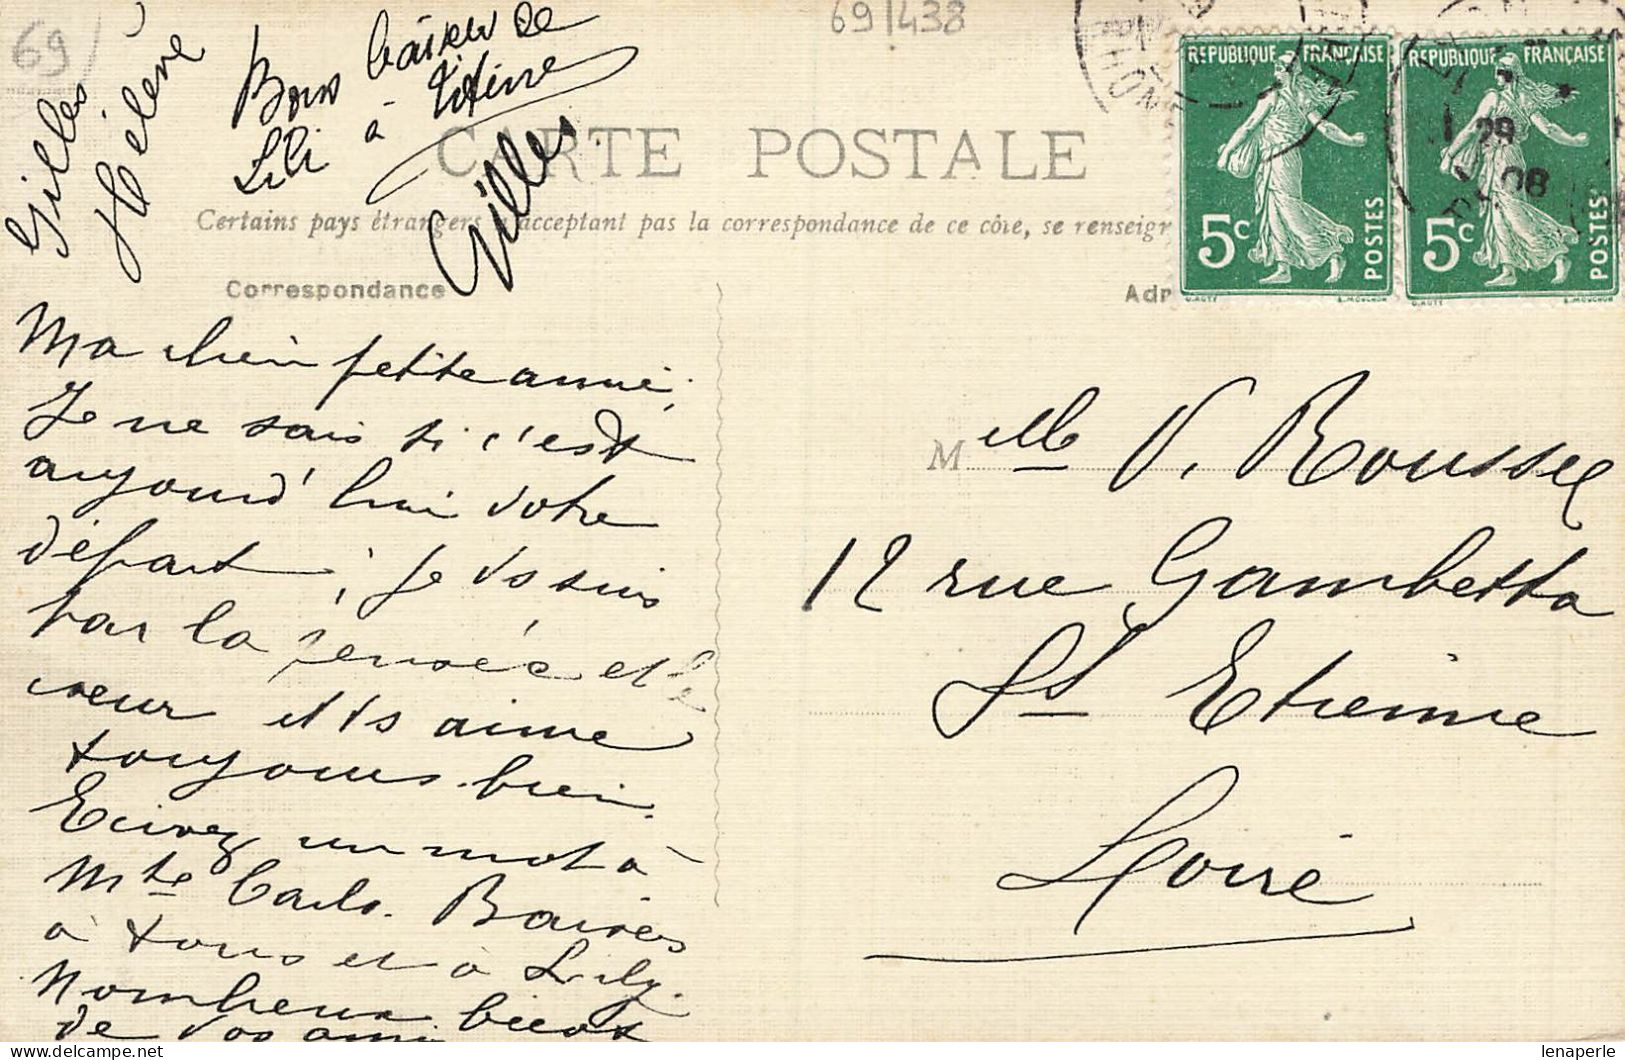 69
69/438
Gilles
Hélène
Bons baisers de
Lili à Titine
Gilles
CARTE POSTALE
Certains pays étrangers n'acceptant pas la correspondance de ce côté, se renseigr
Correspondance
Adr
RHON
REPUBLIQUE FRANÇAISE
5c
POSTES
O. ROTY
E. MOUCHON
REPUBLIQUE FRANÇAISE
5c
POSTES
O. ROTY
E. MOUCHON
29
08
Ma chère petite amie,
Je ne sais si c'est
aujourd'hui votre
départ, je vs suis
par la pensée et le
cœur et vs aime
toujours bien.
Ecrivez un mot à
Mte Carlo. Baisers
à tous et à Lily.
Nombreux
de vos ami
M elle V. Roussel
12 rue Gambetta
St Etienne
Loire
lenaperle